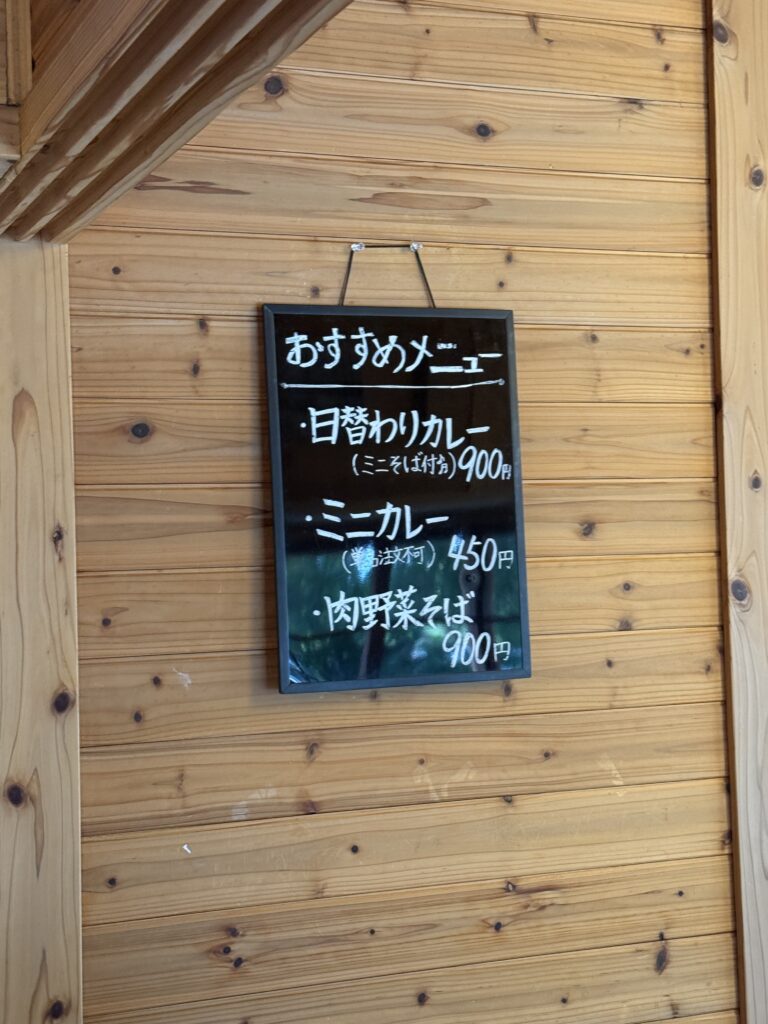 おすすめメニュー
・日替わりカレー
(ミニそば付き)900円
・ミニカレー
(単品注文不可) 450円
・肉野菜そば
900円